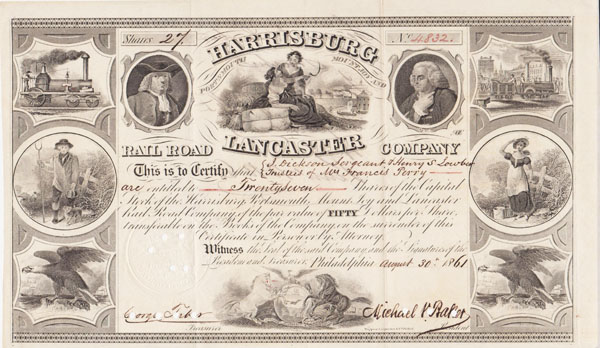 Shares 27.
No. 4832.
HARRISBURG
PORTSMOUTH MOUNTJOY AND
LANCASTER
RAIL ROAD COMPANY
This is to Certify that J. Dickson Sergeant & Henry S Lowber
Trustees of Mrs Francis Perry
are entitled to Twentyseven Shares in the Capital
Stock of the Harrisburg, Portsmouth, Mount Joy and Lancaster
Rail Road Company of the par value of FIFTY Dollars per Share,
transferable on the Books of the Company, on the surrender of this
Certificate in Person or by Attorney.
Witness the Seal of the said Company, and the Signatures of the
President and Treasurer, Philadelphia August 30th 1861
Treasurer
President